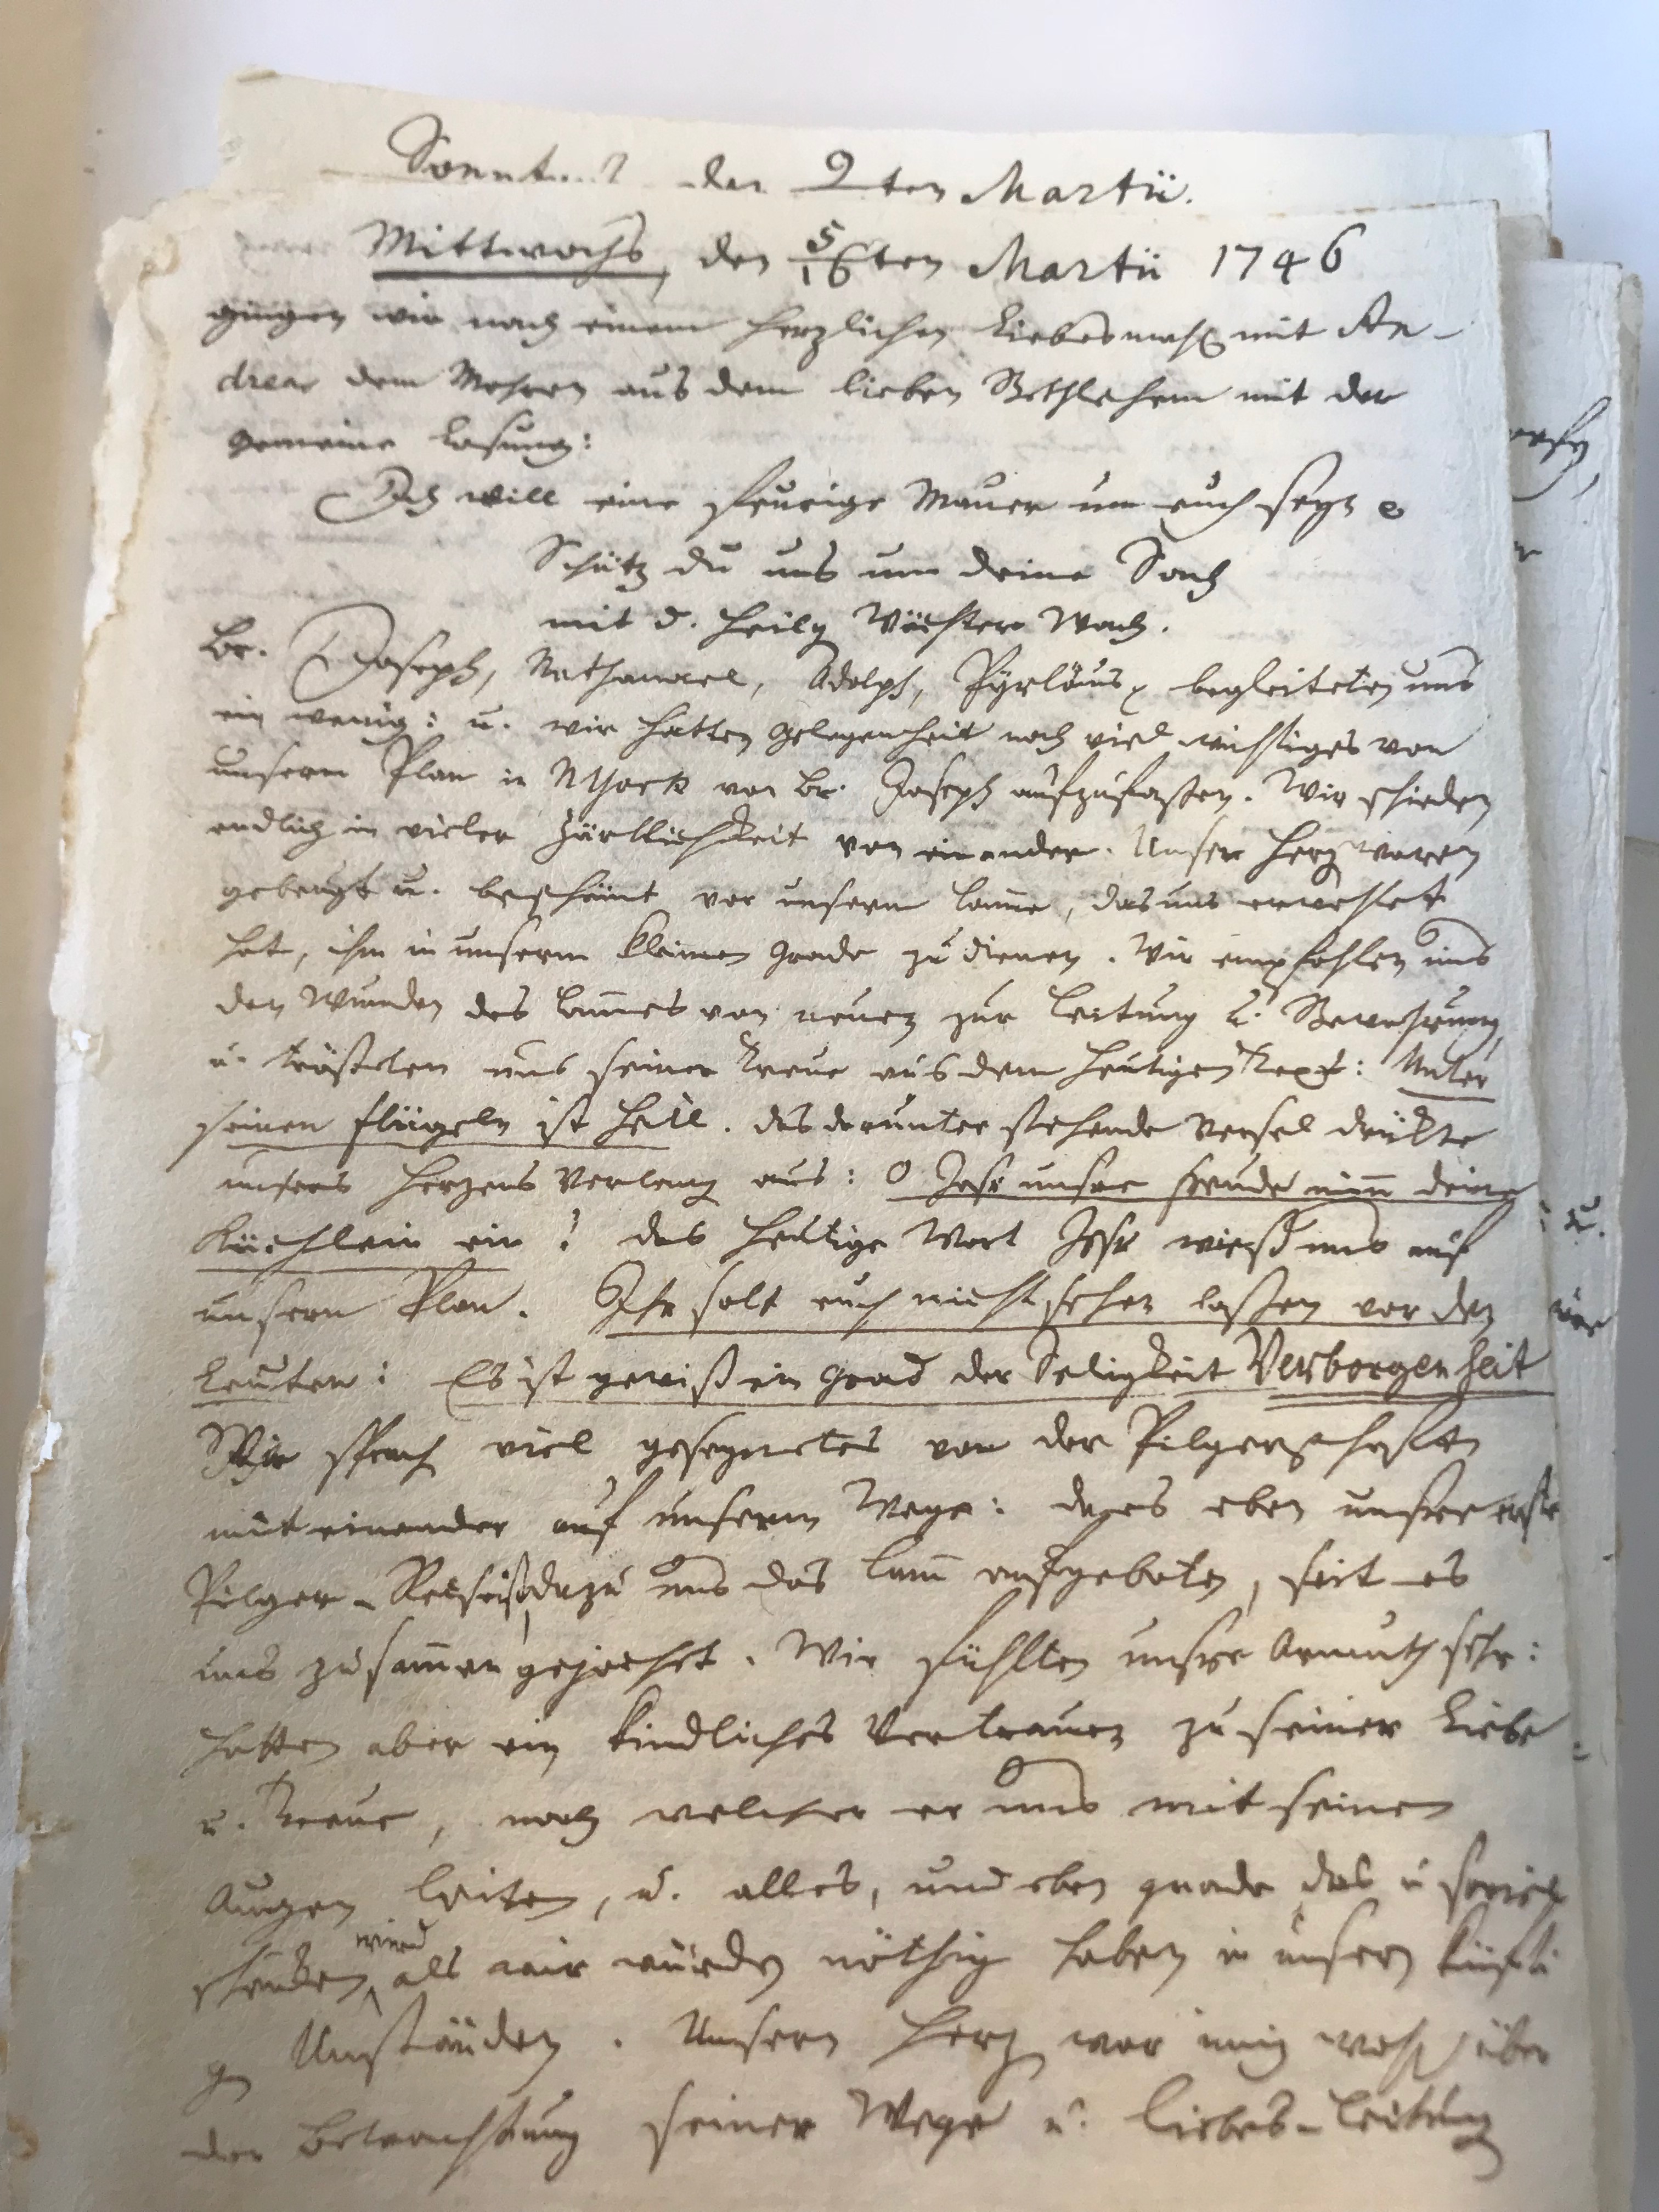 den 9ten Martii.
Mittwochs, den 5/16ten Martii 1746
gingen wir nach einem herzlichen Liebesmahl mit An-
dreas dem Mohren aus dem lieben Bethlehem mit der
Gemeine Losung:
Ich will eine feurige Mauer um euch seyn
Schütz du uns um deine Sach
mit d. heilg Wächter Wach.
Br. Joseph, Nathanael, Adolph, Pyrläus begleiteten uns
ein wenig: u. wir hatten Gelegenheit noch viel wichtiges von
unserm Plan in NYork von Br. Joseph aufzufassen. Wir schieden
endlich in vieler Zärtlichkeit von einander. Unser Herz waren
gebeugt u. beschämt vor unserm Lamme, das uns erwehlet
hat, ihm in unserm kleinen Grade zu dienen. Wir empfohlen uns
den Wunden des Lammes von neuen zur Leitung u. Bewahrung
u. trösteten uns seiner Treue aus dem heutigen Text: Unter
seinen Flügeln ist Heil. das darunter stehende Versel drükte
unsers Herzens Verlang aus: O Jesu unsre Freude nim̄ deine
Küchlein ein! das heutige Wort Jesu wieß uns auf
unsern Plan. Ihr solt euch nicht sehen laßen vor den
Leuten: Es ist gewiß ein Grad der Seligkeit Verborgenheit
Wir sprach viel gesegnetes von der Pilgerschaften
mit einander auf unserm Wege: daß es eben unsre erste
Pilger-Reise ist, dazu uns das Lam̄ aufgeboten, seit es
uns zusam̄en gejochet. Wir fühlten unsre Armuth sehr:
hatten aber ein kindliches Vertrauen zu seiner Liebe
u. Treue, nach welcher er uns mit seinen
Augen leiten, u. alles, und eben grade das u soviel
schenken wird als wir würden nöthig haben in unsern künfti
gn Umständen. Unsern Herz war innig wohl über
der Betrachtung seiner Wege u. Liebes-Leitung